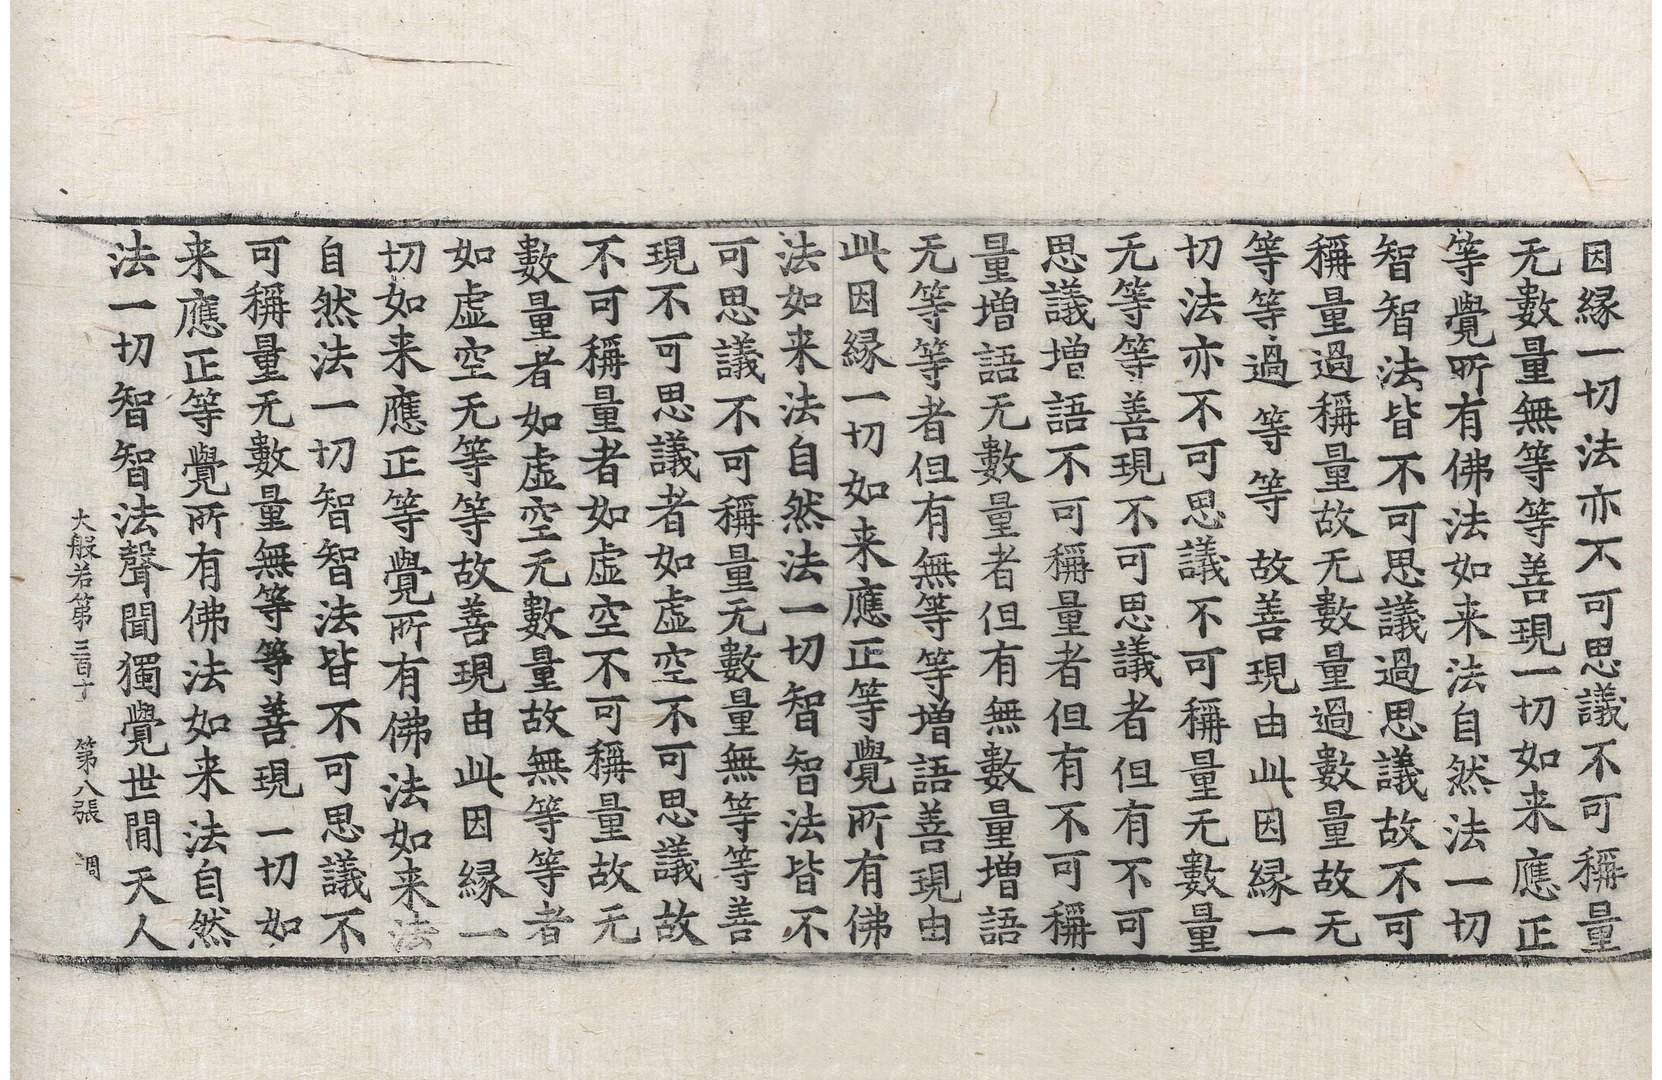 因縁一切法亦不可思議不可稱量
无數量無等等善現一切如来應正
等覺所有佛法如来法自然法一切
智智法皆不可思議過思議故不可
稱量過稱量故无數量過數量故无
等等過等等故善現由此因縁一
切法亦不可思議不可稱量无數量
无等等善現不可思議者但有不可
思議增語不可稱量者但有不可稱
量增語无數量者但有無數量增語
无等等者但有無等等增語善現由
此因縁一切如来應正等覺所有佛
法如来法自然法一切智智法皆不
可思議不可稱量无數量無等等善
現不可思議者如虚空不可思議故
不可稱量者如虚空不可稱量故无
數量者如虚空无數量故無等等者
如虚空无等等故善現由此因縁一
切如来應正等覺所有佛法如来法
自然法一切智智法皆不可思議不
可稱量无數量無等等善現一切如
来應正等覺所有佛法如来法自然
法一切智智法聲聞獨覺世間天人
大般若第三百十 第八張 調